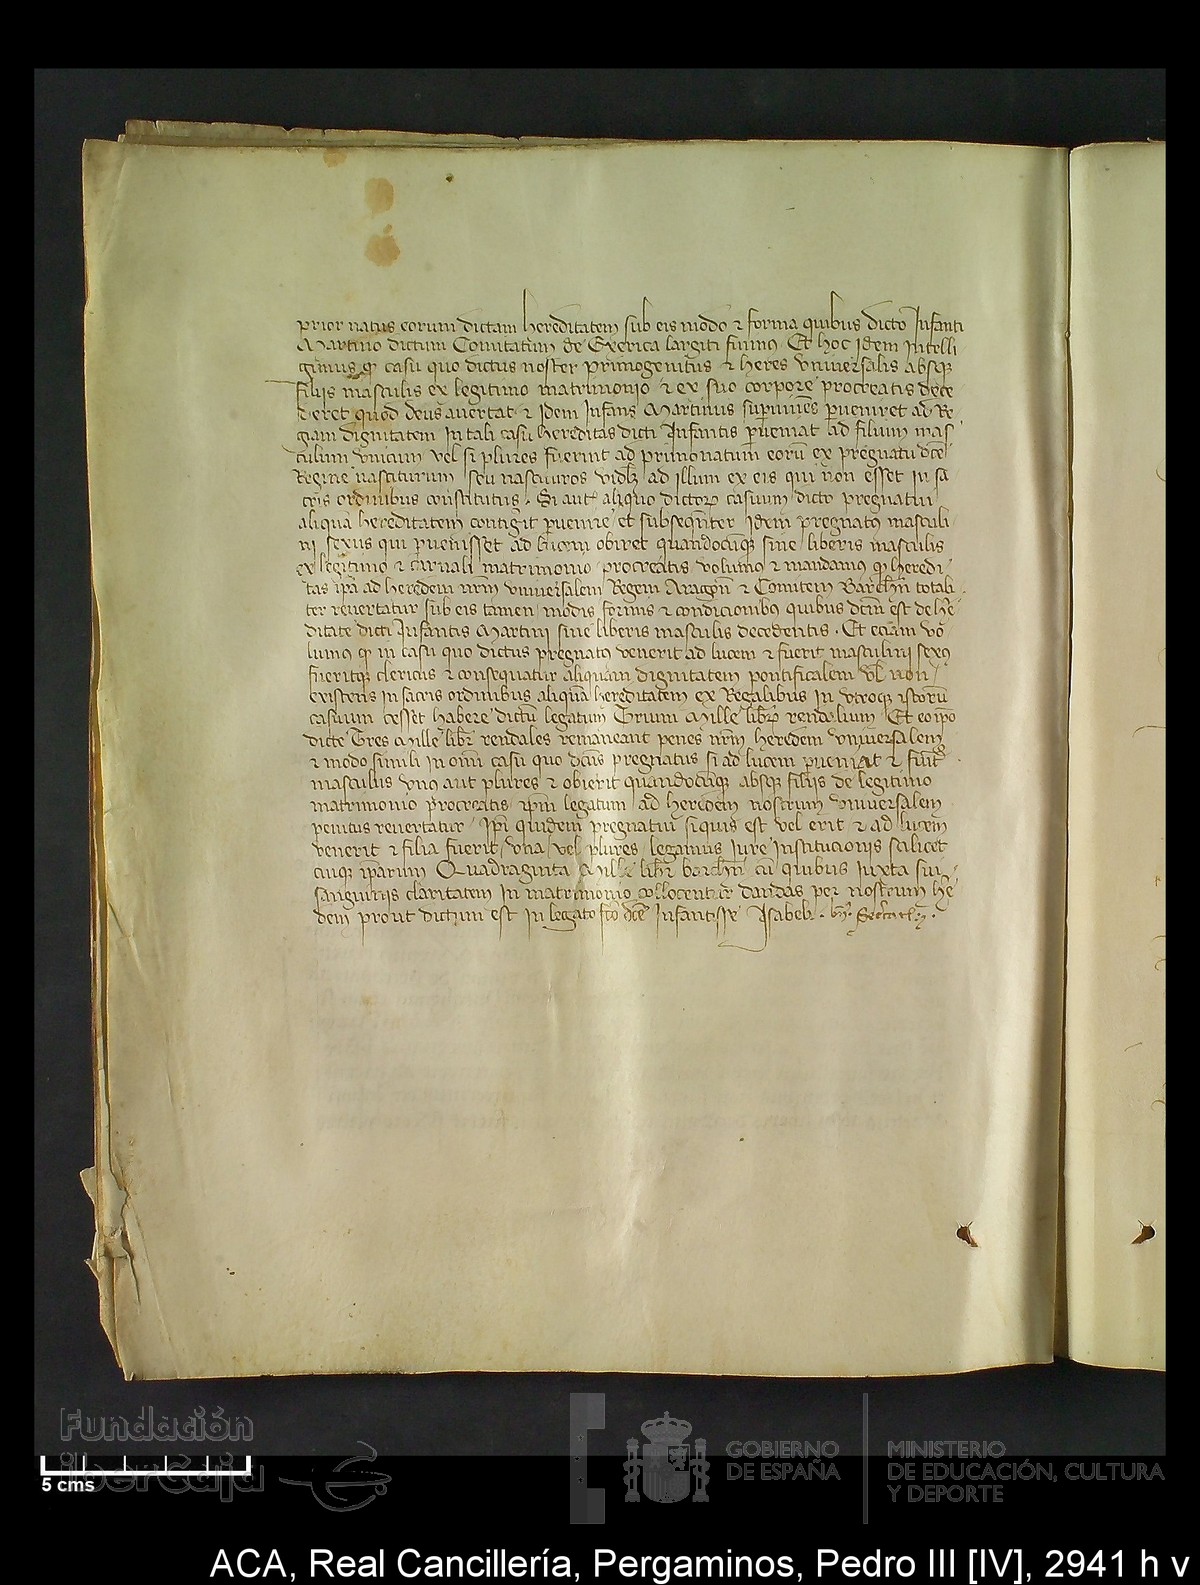 prior natus eorum dictam hereditatem sub eis modo & forma quibus dicto Infanti
Martino dictum Comitatum de Exerica largiti fuimus Et hoc idem intelli
gimus qd casu quo dictus noster primogenitus & heres universalis absqz
filijs masculis ex legitimo matrimonio & ex suo corpore procreatis dece
deret quod deus avertat & idem Infans Martinus supvivēs pveniret ad Re
giam dignitatem In tali casu hereditas dicti Infantis pveniat ad filium mas
culum unicum vel si plures fuerint ad primonatum eorū ex pregnatu dce
Regine nasciturum seu nascituros vidlz ad illum ex eis qui non esset in sa
cris ordinibus constitutus. Si aut aliquo dictorz casuum dicto pregnatui
aliquā hereditatem contigit pvenire et subsequēter idem pregnatus masculi
ni sexus qui pvenisset ad lucem obiret quandocūqz sine liberis masculis
ex legitimo & carnali matrimonio procreatis volumus & mandamus qd heredi
tas ipa ad heredem nrm universalem Regem Aragon & Comitem Barchn totali
ter revertatur sub eis tamen modis formis & condicionibus quibus dcm est de he
ditate dicti Infantis Martini sine liberis masculis decedentis. Et eciam vo
lumus qd in casu quo dictus pregnatus venerit ad lucem & fuerit masculini sexus
fueritqz clericus & consequatur aliquam dignitatem pontificalem vl non
existens in sacris ordinibus aliquā hereditatem ex Regalibus in utroqz istorū
casuum cesset habere dictū legatum Trium Mille librz rendalium Et eo ipo
dicte Tres Mille libr rendales remaneant penes nrm heredem universalem
& modo simili in omi casu quo dcus pregnatus si ad lucem pveniat & fuit
masculus unus aut plures & obierit quandocūqz absqz filijs de legitimo
matrimonio procreatis ipm legatum ad heredem nostrum universalem
penitus revertatur. Ipi quidem pregnatui siquis est vel erit & ad lucem
venerit & filia fuerit una vel plures legamus Iure Institucionis scilicet
cuiqz iparum Quadraginta Mille libr barchn cū quibus iuxta sui
sanguinis claritatem in matrimonio collocentur dandas per nostrum he
dem prout dictum est in legato fco dce Infantisse Isabel.
5 cms
Fundación
iberCaja
GOBIERNO
DE ESPAÑA
MINISTERIO
DE EDUCACIÓN, CULTURA
Y DEPORTE
ACA, Real Cancillería, Pergaminos, Pedro III [IV], 2941 h v